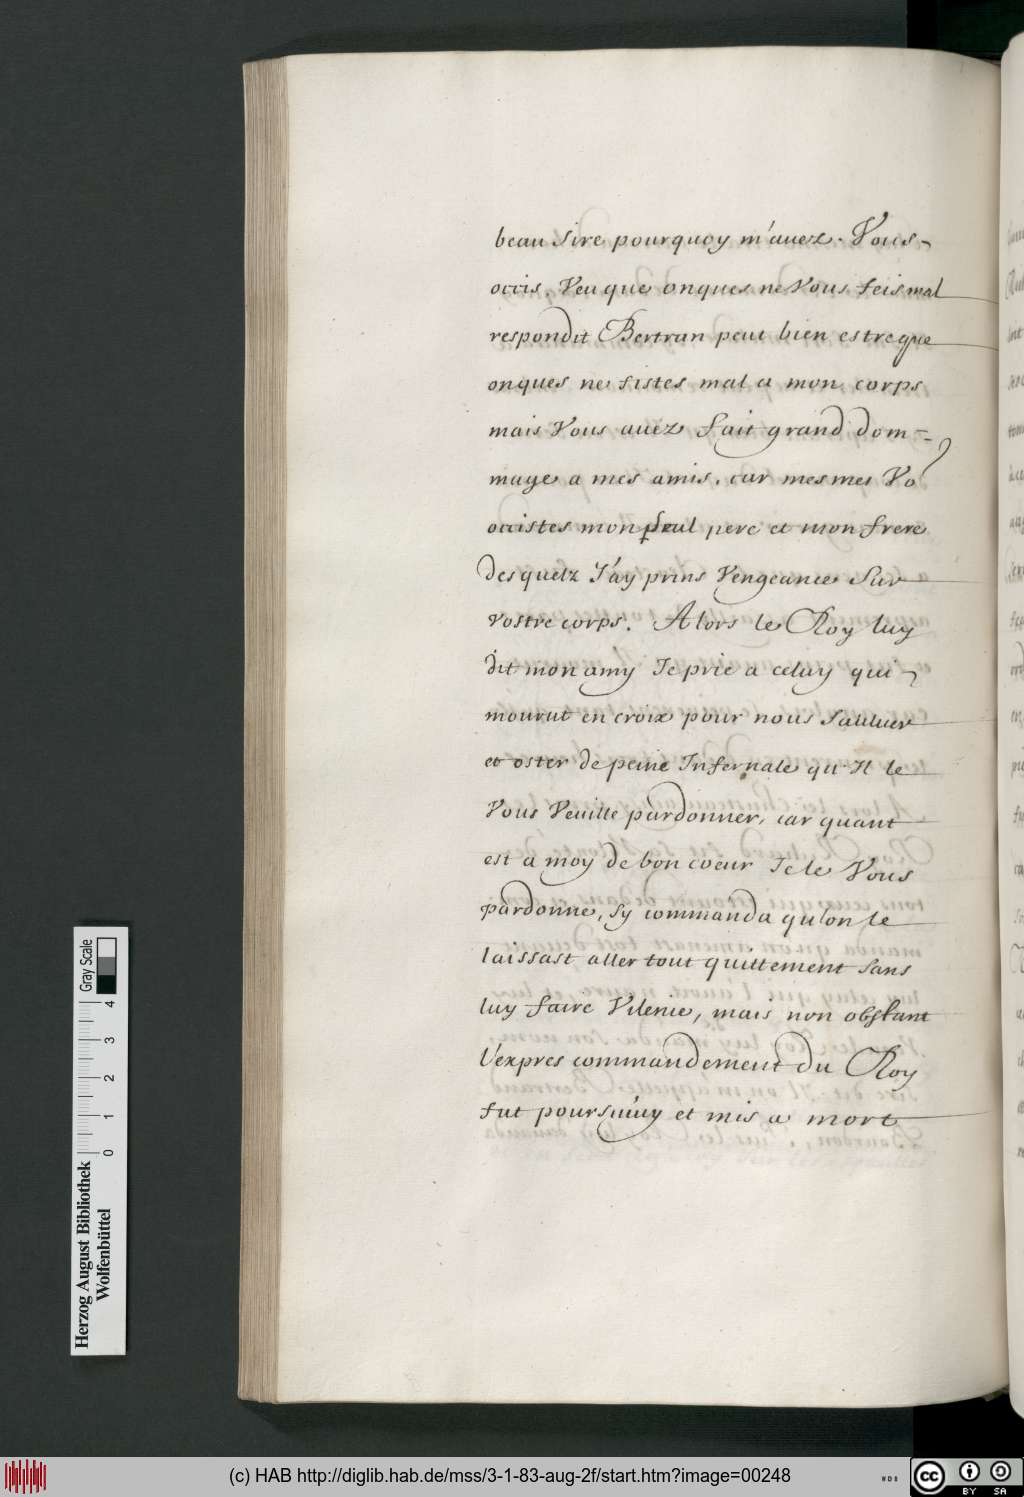 beau sire pourquoy m'auez. Vous
occis, Veu que onques ne Vous feis mal
respondit Bertran peut bien estre que
onques ne fistes mal a mon corps
mais Vous auez fait grand dom=
mage a mes amis. car mesmes Vo
occistes mon pere et mon frere
desquelz J'ay prins Vengeance Sur
vostre corps. Alors le Roy luy
dit mon amy Je prie a celuy qui
mourut en croix pour nous sauluer
et oster de peine Infernale qu'Il le
Vous Veuille pardonner, car quant
est a moy de bon coeur Je le Vous
pardonne, sy commanda qu'lon le
laissast aller tout quittement sans
luy faire Vilenie, mais non obstant
l'expres commandement du Roy
fut poursuiuy et mis a mort
Herzog August Bibliothek
Wolfenbüttel
Gray Scale
0 1 2 3 4
(c) HAB http://diglib.hab.de/mss/3-1-83-aug-2f/start.htm?image=00248
WDB
cc BY SA